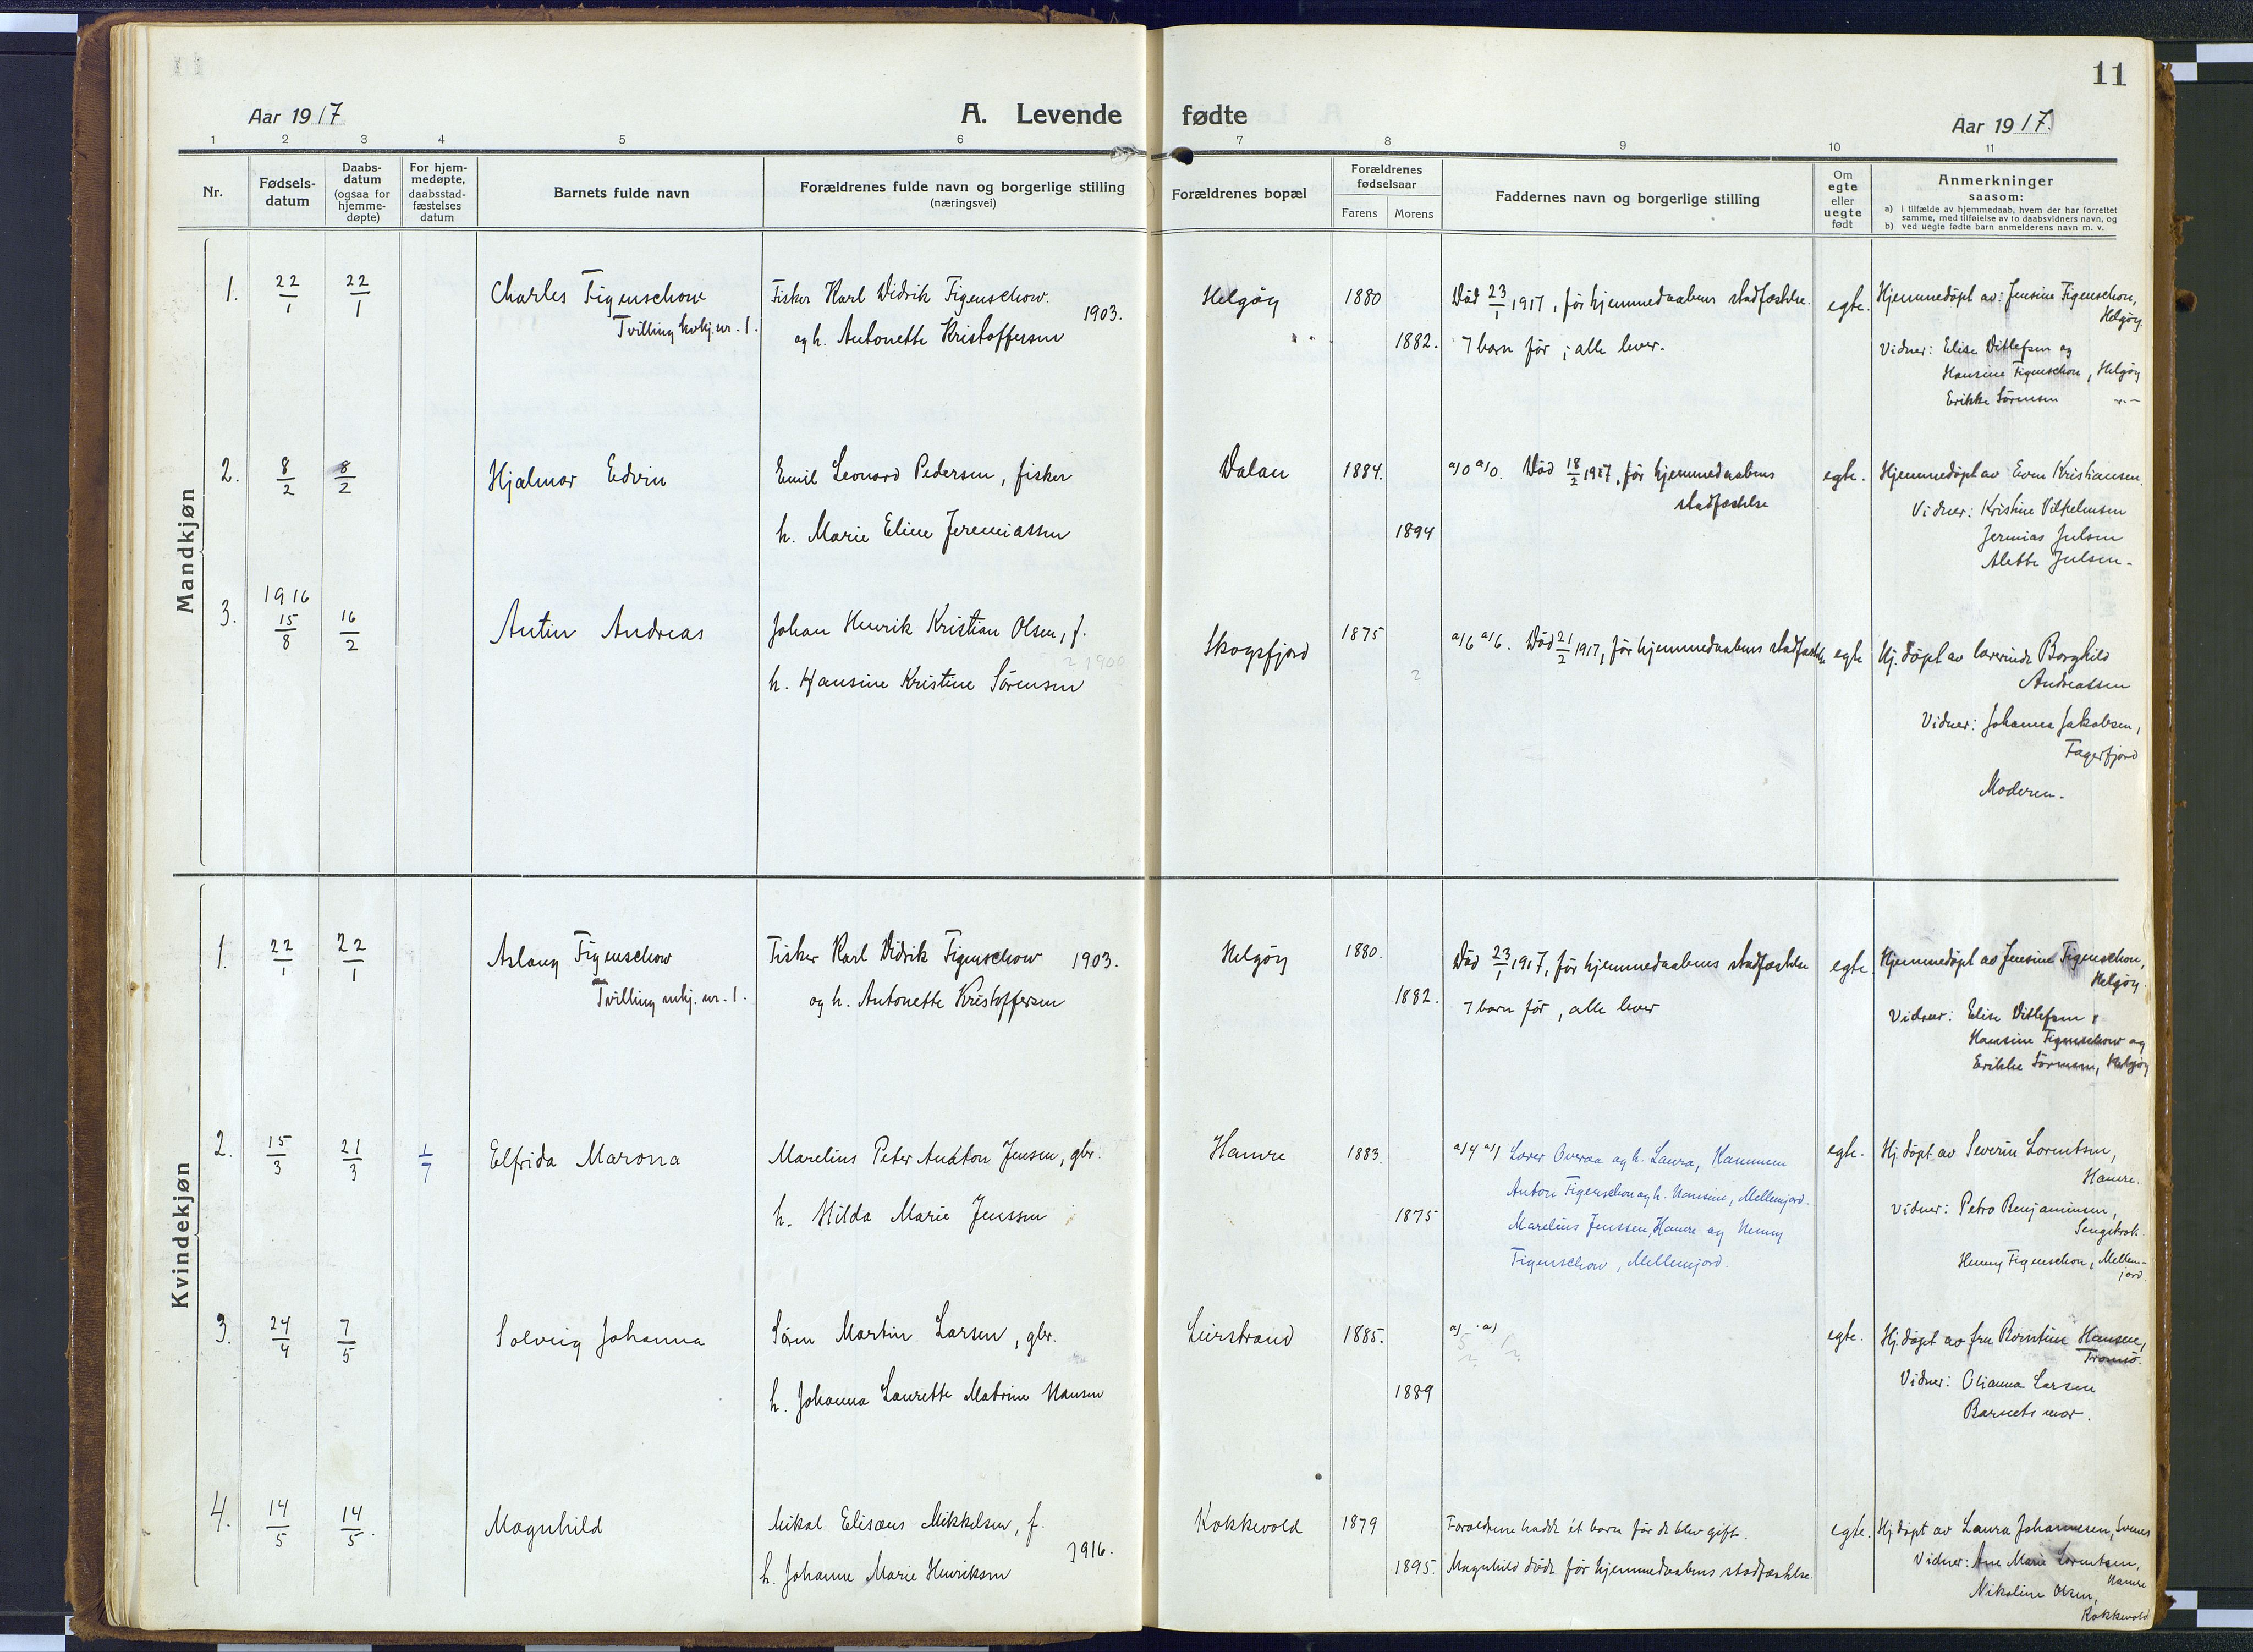 11
Aar 1917
A. Levende fødte
Aar 1917.
1 2 3 4 5 6 7 8 9 10 11
Nr.
Fødsels-
datum
Daabs-
datum
(ogsaa for
hjemme-
døpte)
For hjem-
medøpte,
daabsstad-
fæstelses
datum
Barnets fulde navn
Forældrenes fulde navn og borgerlige stilling
(næringsvei)
Forældrenes bopæl
Forældrenes
fødselsaar
Farens Morens
Faddernes navn og borgerlige stilling
Om
egte
eller
uegte
født
Anmerkninger
saasom:
a) i tilfælde av hjemmedaab, hvem der har forrettet
samme, med tilføielse av to daabsvidners navn, og
b) ved uegte fødte barn anmelderens navn m. v.
Mandkjøn
1. 22/1 22/1 Charles Figenschow
Tvilling kvkj. nr. 1.
Fisker Karl Didrik Figenschow.
1903.
og h. Antonette Kristoffersen
Helgøy 1880
1882.
Død 23/1 1917, før hjemmedaabens stadfæstelse.
7 barn før ; alle lever.
egte.
Hjemmedøpt av: Jensine Figenschou,
Helgøy.
Vidner: Elise Ditlefsen og
Hansine Figenschou, Helgøy
Erikke Sørensen -"-
2. 8/2 8/2 Hjalmar Edvin
Emil Leonard Pedersen, fisker
h. Marie Eline Jeremiassen
Dalan 1884.
1894
a) 0 a) 0. Død 18/2 1917, før hjemmedaabens
stadfæstelse
egte.
Hjemmedøpt av Even Kristiansen.
Vidner: Kristine Vilhelmsen
Jermias Julsen
Alette Julsen.
3. 1916
15/8 16/2 Antin Andreas
Johan Henrik Kristian Olsen, f.
? 1900
h. Hansine Kristine Sørensen
Skogsfjord 1875
?
a) 6 a) 6. Død 21/2 1917, før hjemmedaabens stadfæstelse
egte
Hj. døpt av lærerinde Borghild
Andreassen
Vidner: Johanna Jakobsen,
Fagerfjord
Moderen.
Kvindekjøn
1. 22/1 22/1 Aslaug Figenschow
Tvilling mkj. nr. 1.
Fisker Karl Didrik Figenschow 1903.
og h. Antonette Kristoffersen
Helgøy 1880.
1882.
Død 23/1 1917, før hjemmedaabens stadfæstelse
7 barn før, alle lever
egte.
Hjemmedøpt av Jensine Figenschou,
Helgøy.
Vidner: Elise Ditlefsen,
Hansine Figenschow og
Erikke Sørensen, Helgøy
2. 15/3 21/3 1/7 Elfrida Marona
Marelius Peter Anton Jensen, gbr.
h. Hilda Marie Jenssen
Hamre 1883.
1875
a) 4 a) 1 Lærer Overaa og h. Laura, Kammen
Anton Figenschou og h. Hansine, Mellemjord.
Marelius Jenssen, Hamre og Henny
Figenschow, Mellemjord.
egte.
Hj. døpt av Severin Lorentsen,
Hamre.
Vidner: Petro Benjaminsen,
Sengskrok.
Henny Figenschou, Mellem-
jord.
3. 24/4 7/5 Solveig Johanna
Søren Martin Larsen, gbr.
h. Johanna Laurette Matrine Hansen
Leirstrand 1885.
1889
a) 5 ? a) 1 ?
egte.
Hj. døpt av fru Berntine Hansen,
Tromsø.
Vidner: Olianna Larsen
Barnets mor.
4. 14/5 14/5. Magnhild
Mikal Elisæus Mikkelsen, f.
1916.
h. Johanne Marie Henriksen
Kokkevold 1879
1895.
Forældrene hadde ét barn før de blev gift.
Magnhild døde før hjemmedaabens stadfæstelse.
egte.
Hj. døpt av Laura Johannesen,
Vidner: Ane Marie Lorentsen,
Hamre
Nikoline Olsen,
Kokkevold